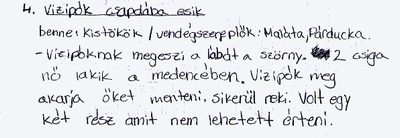 4. Vizipók csapdába esik
benne: Kistökök / vendégszereplők: Maláta, Párducka.
- Vizipóknak megeszi a lábát a szörny. 2 csiga
nő lakik a medencében. Vizipók meg
akarja őket menteni, sikerül neki. Volt egy
két rész amit nem lehetett érteni.